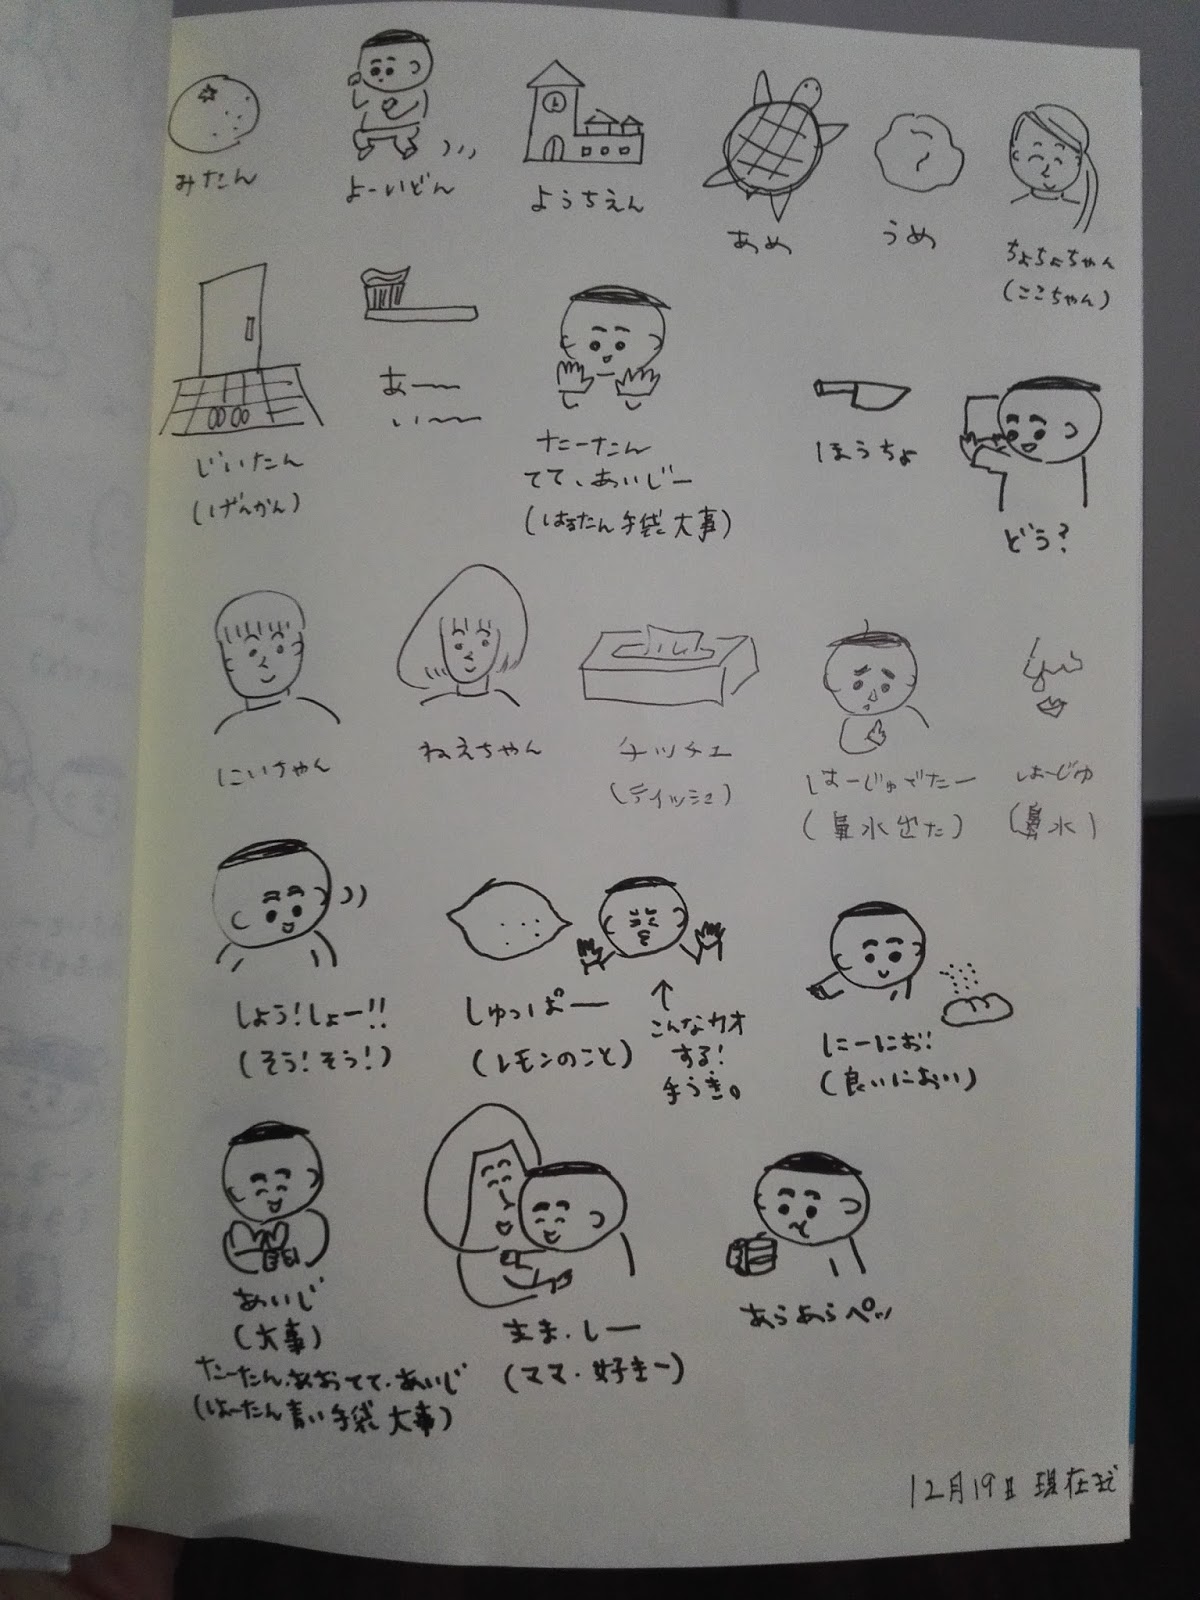 みたん
よーいどん
ようちえん
あめ
うめ
ちょちょちゃん
(ここちゃん)
じいたん
(げんかん)
あ〜〜
い〜〜
たーたん
てて、あいじー
(はるたん手袋大事)
ほうちょ
どう?
にいちゃん
ねえちゃん
チッチェ
(ティッシュ)
はーじゅでたー
(鼻水出た)
はーじゅ
(鼻水)
しょう!しょー!!
(そう!そう!)
しゅっぱー
(レモンのこと)
↑
こんなカオ
する!
手つき。
にーにお!
(良いにおい)
あいじ
(大事)
たーたん、あおてて、あいじ
(はーたん青い手袋大事)
まま、しー
(ママ・好きー)
あらあらペッ
12月19日現在まで